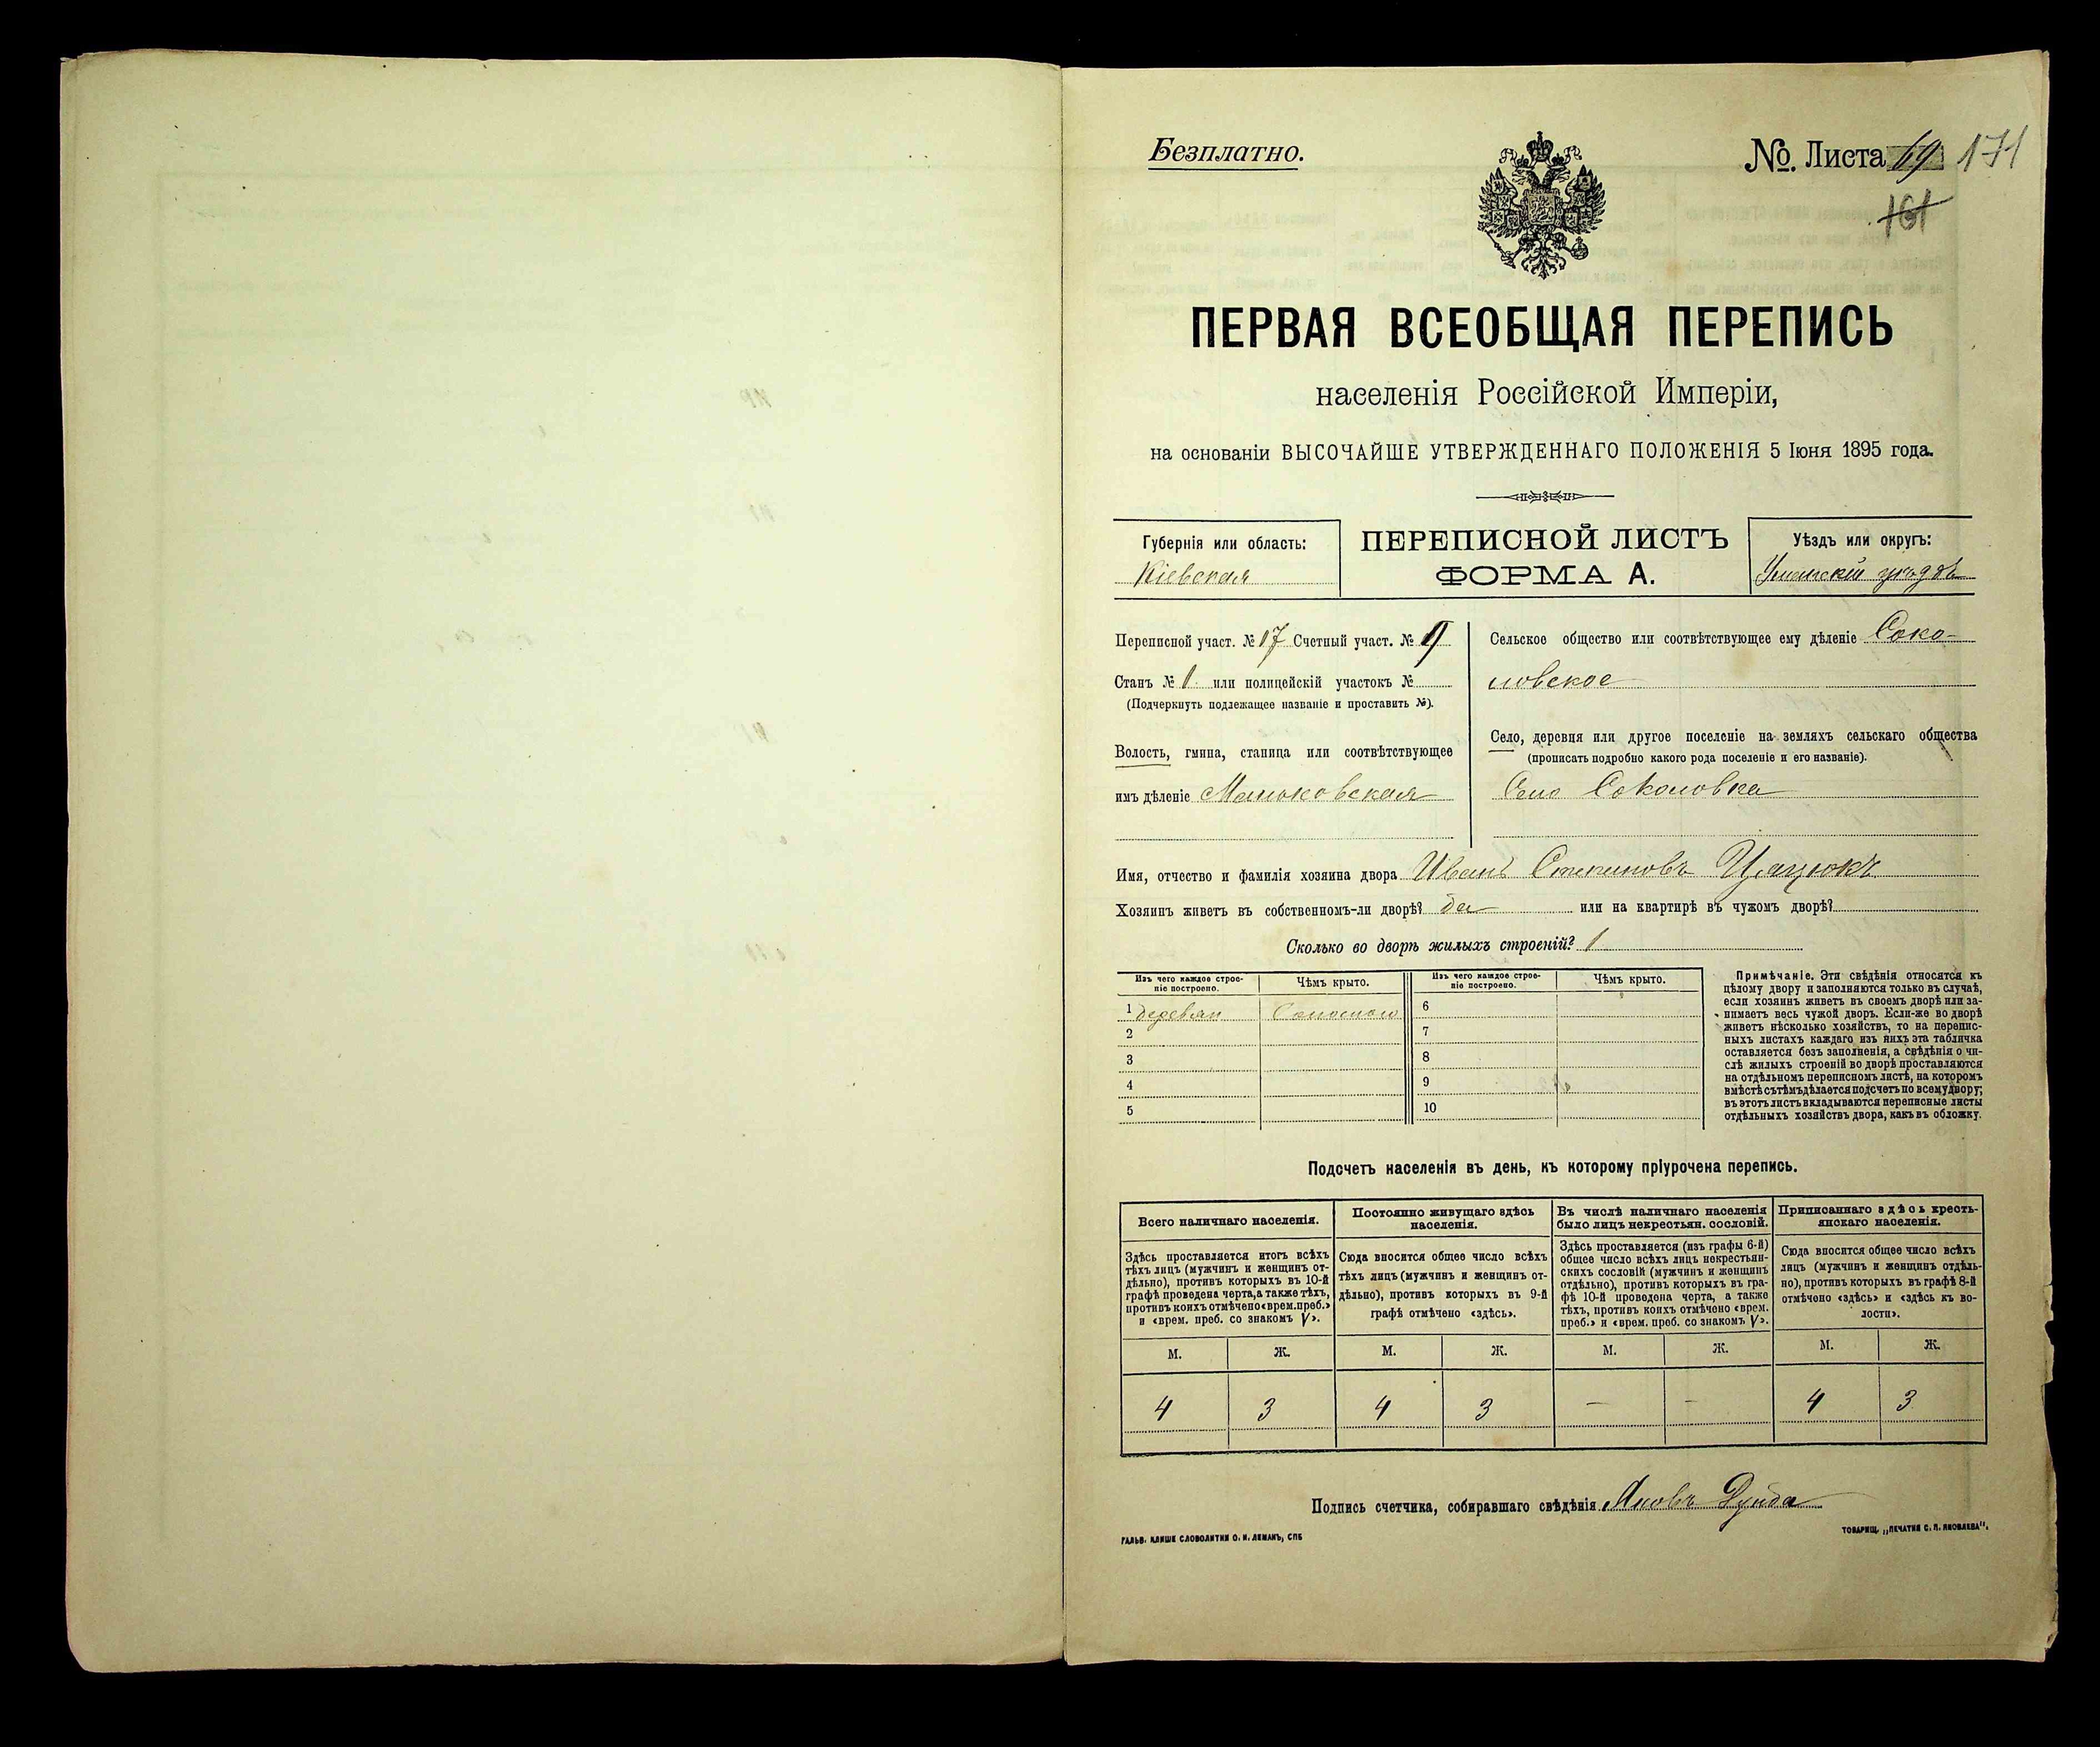 Безплатно.
№. Листа 69 171
161
ПЕРВАЯ ВСЕОБЩАЯ ПЕРЕПИСЬ
населенія Россійской Имперіи,
на основаніи ВЫСОЧАЙШЕ УТВЕРЖДЕННАГО ПОЛОЖЕНІЯ 5 Іюня 1895 года.
Губернія или область:
Кіевская
ПЕРЕПИСНОЙ ЛИСТЪ
ФОРМА А.
Уѣздъ или округъ:
Уманскій уѣздъ
Переписной участ. № 17 Счетный участ. № 9
Станъ № 1 или полицейскій участокъ №
(Подчеркнуть подлежащее названіе и проставить №).
Волость, гмина, станица или соотвѣтствующее
имъ дѣленіе Маньковская
Сельское общество или соотвѣтствующее ему дѣленіе Соко-
ловское
Село, деревня или другое поселеніе на земляхъ сельскаго общества
(прописать подробно какого рода поселеніе и его названіе).
Село Соколовка
Имя, отчество и фамилія хозяина двора Иванъ Степановъ Цацюкъ
Хозяинъ живетъ въ собственномъ-ли дворѣ? да или на квартирѣ въ чужомъ дворѣ?
Сколько во дворѣ жилыхъ строеній? 1
Изъ чего каждое строе-
ніе построено.
Чѣмъ крыто.
Изъ чего каждое строе-
ніе построено.
Чѣмъ крыто.
1 деревян Соломою 6
2 7
3 8
4 9
5 10
Примѣчаніе. Эти свѣдѣнія относятся къ
цѣлому двору и заполняются только въ случаѣ,
если хозяинъ живетъ въ своемъ дворѣ или за-
нимаетъ весь чужой дворъ. Если-же во дворѣ
живетъ нѣсколько хозяйствъ, то на перепис-
ныхъ листахъ каждаго изъ нихъ эта табличка
оставляется безъ заполненія, а свѣдѣнія о чи-
слѣ жилыхъ строеній во дворѣ проставляются
на отдѣльномъ переписномъ листѣ, на которомъ
вмѣстѣ съ тѣмъ дѣлается подсчетъ по всему двору;
въ этотъ листъ вкладываются переписные листы
отдѣльныхъ хозяйствъ двора, какъ въ обложку.
Подсчетъ населенія въ день, къ которому пріурочена перепись.
Всего наличнаго населенія.
Здѣсь проставляется итогъ всѣхъ
тѣхъ лицъ (мужчинъ и женщинъ от-
дѣльно), противъ которыхъ въ 10-й
графѣ проведена черта, а также тѣхъ,
противъ коихъ отмѣчено «врем. преб.»
и «врем. преб. со знакомъ V».
Постоянно живущаго здѣсь
населенія.
Сюда вносится общее число всѣхъ
тѣхъ лицъ (мужчинъ и женщинъ от-
дѣльно), противъ которыхъ въ 9-й
графѣ отмѣчено «здѣсь».
Въ числѣ наличнаго населенія
было лицъ некрестьян. сословій.
Здѣсь проставляется (изъ графы 6-й)
общее число всѣхъ лицъ некрестьян-
скихъ сословій (мужчинъ и женщинъ
отдѣльно), противъ которыхъ въ гра-
фѣ 10-й проведена черта, а также
тѣхъ, противъ коихъ отмѣчено «врем.
преб.» и «врем. преб. со знакомъ V».
Приписаннаго здѣсь кресть-
янскаго населенія.
Сюда вносится общее число всѣхъ
лицъ (мужчинъ и женщинъ отдѣль-
но), противъ которыхъ въ графѣ 8-й
отмѣчено «здѣсь» и «здѣсь къ во-
лости».
М. Ж. М. Ж. М. Ж. М. Ж.
4 3 4 3 — — 4 3
Подпись счетчика, собиравшаго свѣдѣнія Яковъ Дунда
ГАЛЬВ. КЛИШЕ СЛОВОЛИТНИ О. И. ЛЕМАНЪ, СПБ
ТОВАРИЩ. „ПЕЧАТНЯ С. П. ЯКОВЛЕВА".